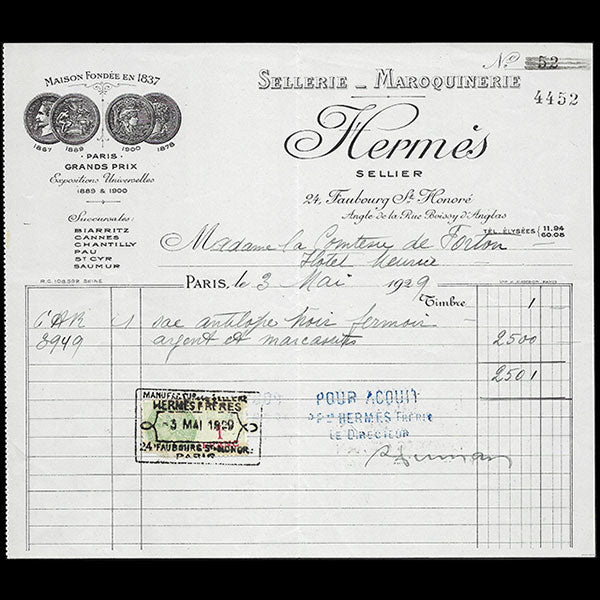 Maison Fondée en 1837
1867 1889 1900 1878
PARIS
GRANDS PRIX
Expositions Universelles
1889 & 1900
Succursales:
BIARRITZ
CANNES
CHANTILLY
PAU
ST CYR
SAUMUR
R.C. 108.592 SEINE
No 52
4452
SELLERIE _ MAROQUINERIE
Hermès
SELLIER
24, Faubourg St Honoré
Angle de la Rue Boissy d'Anglas
TÉL. ÉLYSÉES 11.94
60.08
Madame la Comtesse de Forton
Hotel Meurice
PARIS, le 3 Mai 1929
Timbre 1
1 sac antilope noir fermoir
3949 argent et marcassites 2500
2501
MANUFACTURE SELLERIE
HERMÈS FRÈRES
-3 MAI 1929
24 FAUBOURG ST HONORÉ
PARIS
POUR ACQUIT
HERMÈS FRÈRES
LE DIRECTEUR